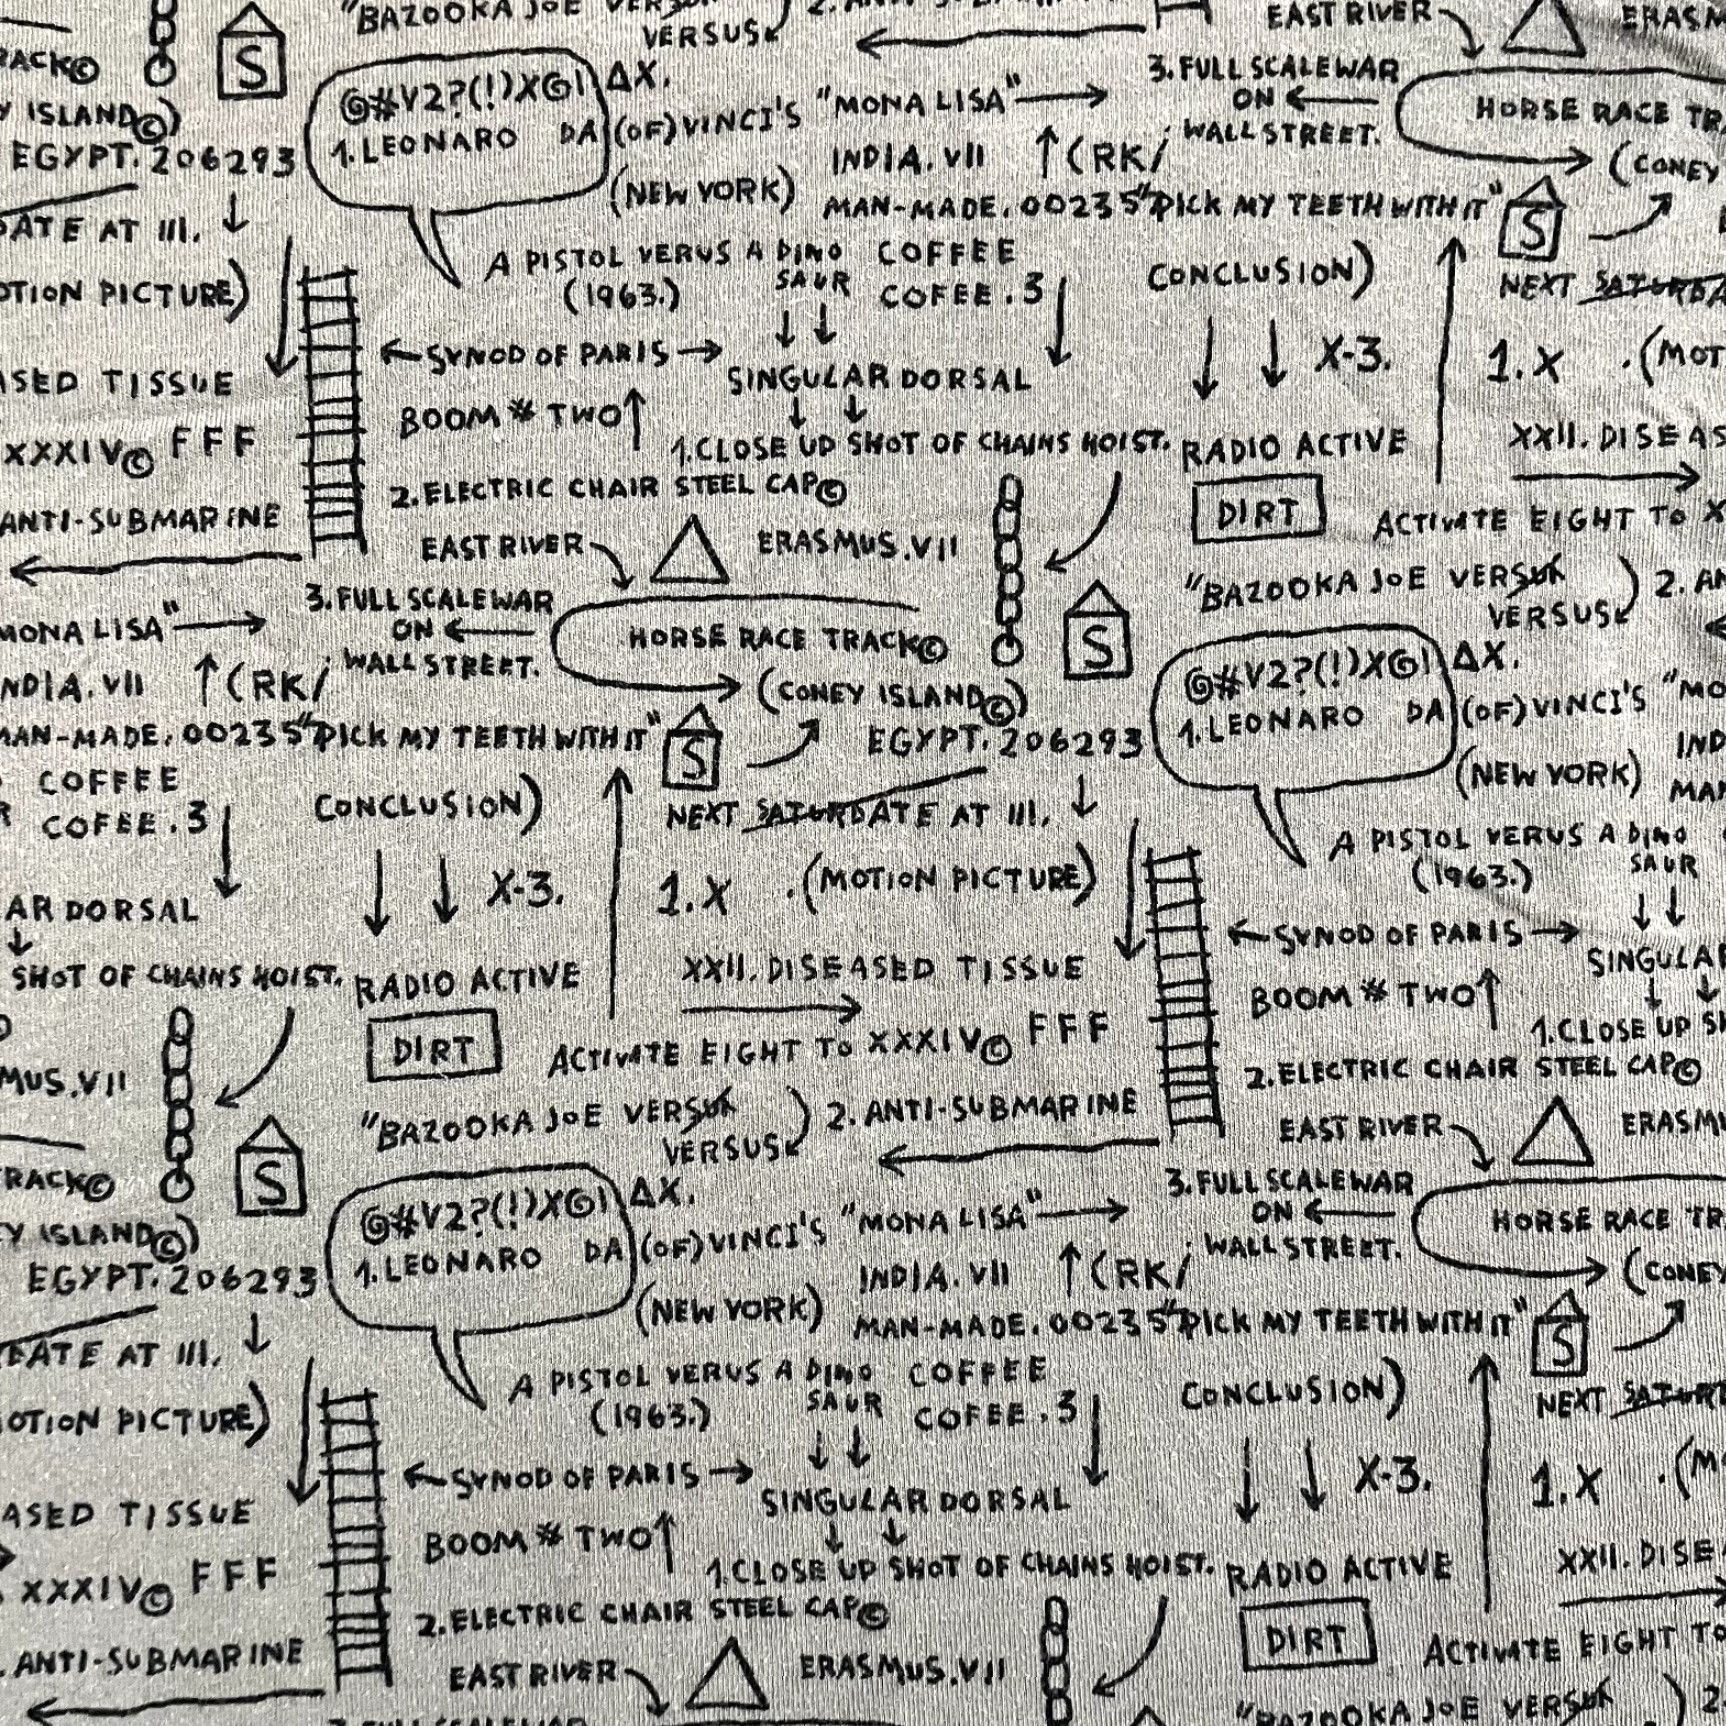 "BAZOOKA JOE VERSUS
VERSUS
EAST RIVER
3. FULL SCALE WAR
ON
WALL STREET.
HORSE RACE TR
(CONEY
RACK©
Y ISLAND©)
EGYPT. 206293
S
@#V2?(!)XG! ΔX.
1. LEONARO DA (OF) VINCI'S "MONA LISA"
INDIA. VII (RK/
(NEW YORK)
MAN-MADE. 00235 "PICK MY TEETH WITH IT"
S
DATE AT III.
A PISTOL VERUS A DINO
SAUR
(1963.)
COFFEE
COFEE. 3
CONCLUSION)
NEXT SATURDA
OTION PICTURE)
SYNOD OF PARIS
X-3.
1. X .(MOT
ASED TISSUE
SINGULAR DORSAL
BOOM # TWO
XXXIV© FFF
1. CLOSE UP SHOT OF CHAINS HOIST.
RADIO ACTIVE
XXII. DISEAS
2. ELECTRIC CHAIR STEEL CAP©
DIRT
ACTIVATE EIGHT TO X
ANTI-SUBMARINE
EAST RIVER
ERASMUS. VII
"BAZOOKA JOE VERSUS
VERSUS
2. AN
MONA LISA"
3. FULL SCALE WAR
ON
WALL STREET.
HORSE RACE TRACK©
(CONEY ISLAND©)
S
NDIA. VII (RK/
@#V2?(!)XG! ΔX.
1. LEONARO DA (OF) VINCI'S "MO
IND
(NEW YORK)
MAN-MADE. 00235 "PICK MY TEETH WITH IT"
S
EGYPT. 206293
MAN
COFFEE
COFEE. 3
CONCLUSION)
NEXT SATURDATE AT III.
A PISTOL VERUS A DINO
SAUR
(1963.)
X-3.
1. X .(MOTION PICTURE)
AR DORSAL
SYNOD OF PARIS
SINGULA
SHOT OF CHAINS HOIST.
RADIO ACTIVE
XXII. DISEASED TISSUE
BOOM # TWO
1. CLOSE UP S
DIRT
ACTIVATE EIGHT TO XXXIV© FFF
2. ELECTRIC CHAIR STEEL CAP©
MUS. VII
"BAZOOKA JOE VERSUS
VERSUS
2. ANTI-SUBMARINE
EAST RIVER
ERASMU
RACK©
S
3. FULL SCALE WAR
ON
WALL STREET.
HORSE RACE TR
(CONEY
Y ISLAND©)
EGYPT. 206293
@#V2?(!)XG! ΔX.
1. LEONARO DA (OF) VINCI'S "MONA LISA"
INDIA. VII (RK/
(NEW YORK)
MAN-MADE. 00235 "PICK MY TEETH WITH IT"
S
DATE AT III.
A PISTOL VERUS A DINO
SAUR
(1963.)
COFFEE
COFEE. 3
CONCLUSION)
NEXT SATURD
OTION PICTURE)
SYNOD OF PARIS
X-3.
1. X .(M
ASED TISSUE
SINGULAR DORSAL
BOOM # TWO
XXXIV© FFF
1. CLOSE UP SHOT OF CHAINS HOIST.
RADIO ACTIVE
XXII. DISE
2. ELECTRIC CHAIR STEEL CAP©
DIRT
ACTIVATE EIGHT TO
ANTI-SUBMARINE
EAST RIVER
ERASMUS. VII
"BAZOOKA JOE VERSUS